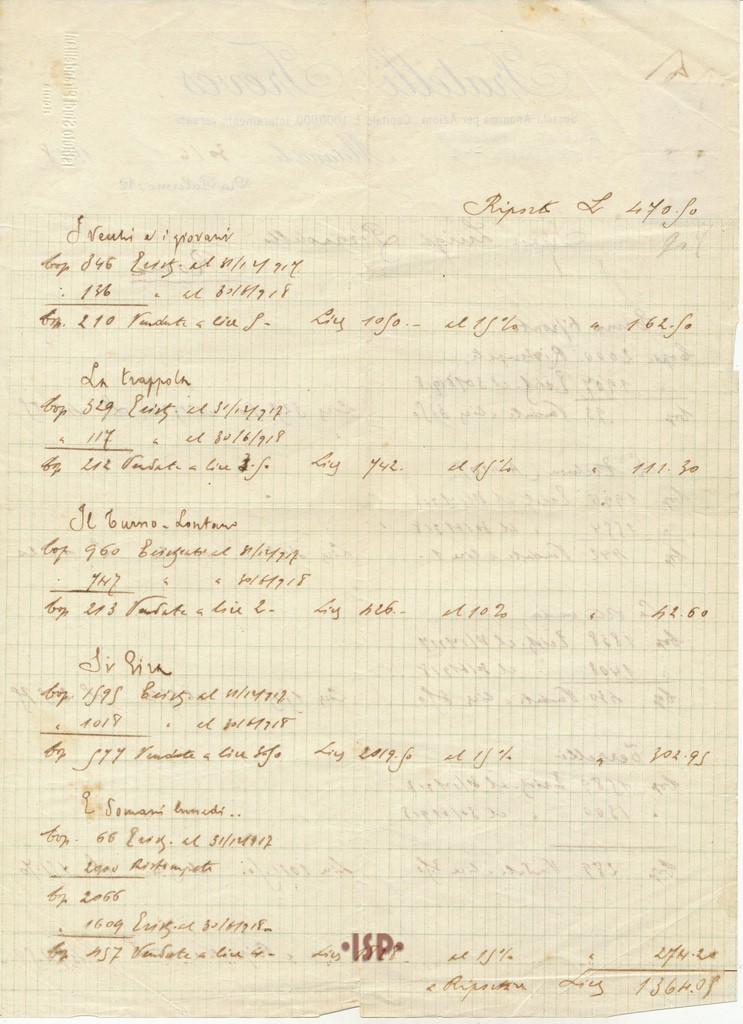 Riporto Lr 470.50
I vecchi e i giovani
cop 346 Esist. al 31/12/917
" 136 " al 30/6/918
cop. 210 Vendute a lire 5 - Lire 1050.- al 15% " 162.50
La trappola
cop 329 Esist. al 31/12/917
" 117 " al 30/6/918
cop 212 Vendute a lire 3.50 Lire 742. al 15% " 111.30
Il Turno - Lontano
cop 960 al 31/12/917
" 747 " " 30/6/918
cop 213 Vendute a lire 2 - Lire 426.- al 10% " 42.60
Si Gira
cop 1595 Esist. al 31/12/917
" 1018 " al 30/6/918
cop 577 Vendute a lire 3.50 Lire 2019.50 al 15% " 302.95
E Domani lunedì..
cop. 66 Esist. al 31/12/917
" 2000 Ristampate
cop 2066
" 1609 Esist. al 30/6/918 -
cop 457 Vendute a lire 4 - Lire 1828 al 15% " 274.20
a Riportare Lire 1364.05
ISP